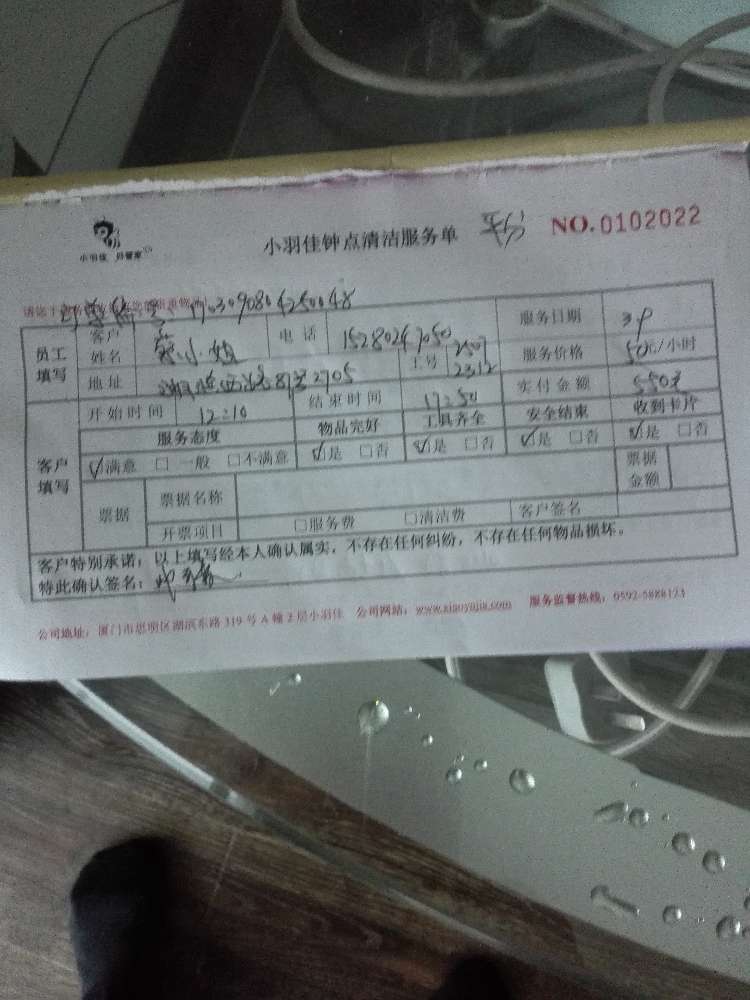 小羽佳 好管家
小羽佳钟点清洁服务单 平分 NO.0102022
1703090804250048
员工填写 客户姓名 小姐 电话 15280247050 服务日期
地址 工号 2507 2312 服务价格 50元/小时
客户填写 开始时间 12:10 结束时间 17:50 实付金额 550元
服务态度 物品完好 工具齐全 安全结束 收到卡片
☑满意 □一般 □不满意 ☑是 □否 ☑是 □否 ☑是 □否 ☑是 □否
票据 票据名称 票据金额
开票项目 □服务费 □清洁费 客户签名
客户特别承诺：以上填写经本人确认属实，不存在任何纠纷，不存在任何物品损坏。
特此确认签名：
公司地址：厦门市思明区湖滨东路319号A幢2层小羽佳 公司网站：www.xiaoyujia.com 服务监督热线：0592-5888123